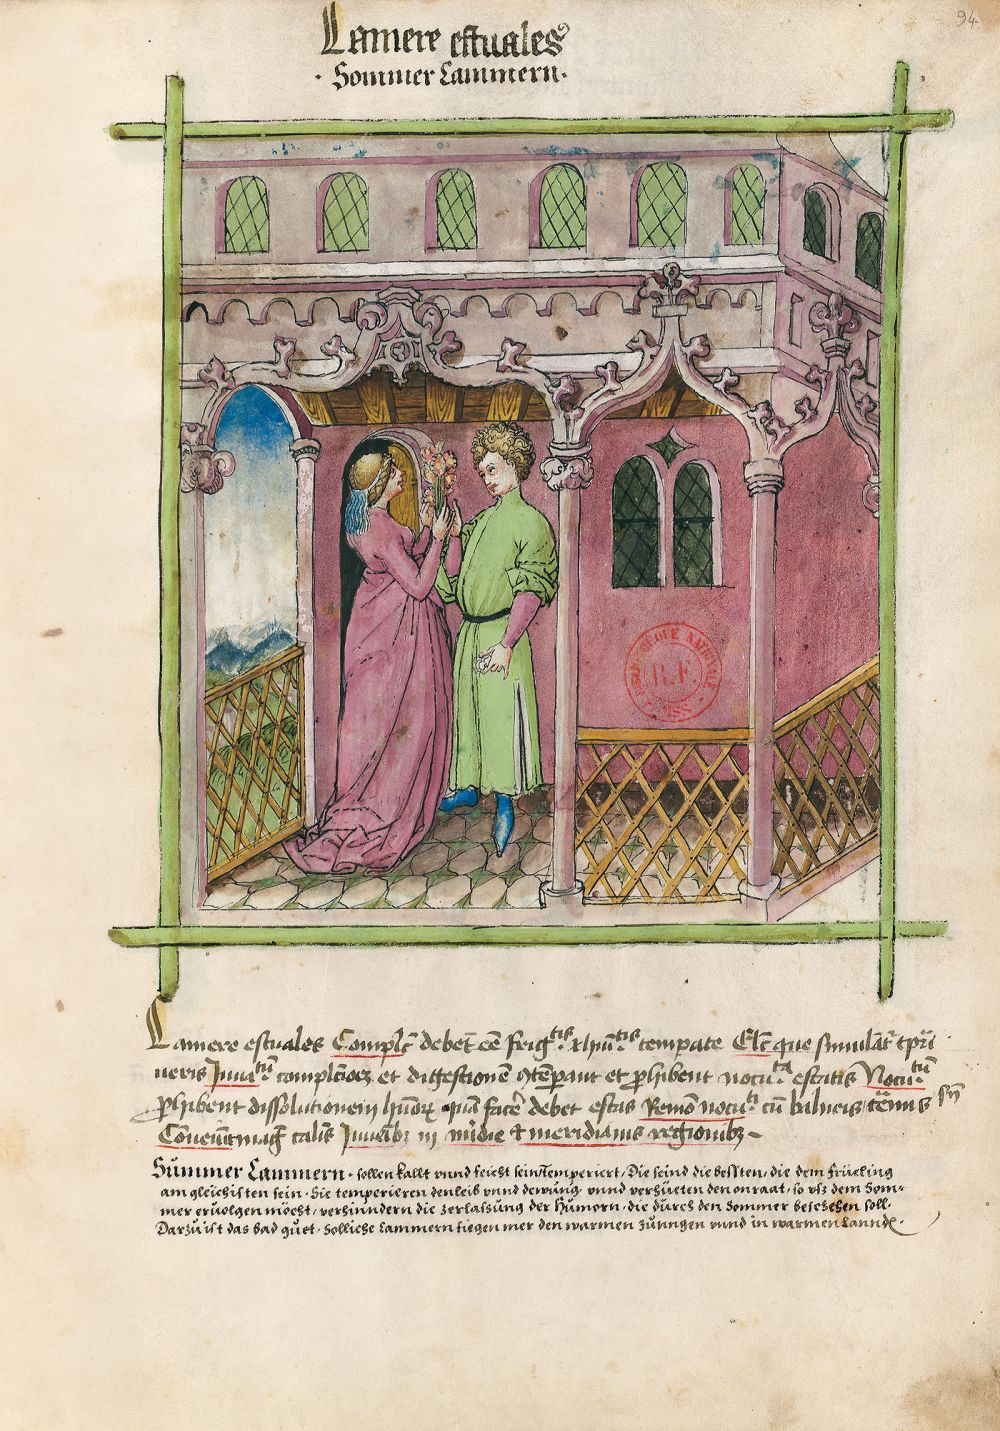 94
Lamere estuales
· Sommer Cammern ·
BIBLIOTHÈQUE NATIONALE
R.F.
MSS
Lamere estuales Complc̄ debet cē frig.tis &hūi.tis temp̄ate Elc̄ que similāt͛ tp̄ri
ueris Juua.tū complexīoēz et digestionē 9tēp̄ant et p̄hibent nocu.tā estatis Nocu.tū
p̄hibent dissolutionem hūoꝝ quā facē͛ debet estas Remō nocu.ti cū balneis
Cōueniūt maḡ calis Juuēibꝫ ī mīdie & meridianis regionibꝫ
Summer Cammern · sollen kallt vnnd feicht sein Temperiert / Die seind die bessten / die dem früeling
am gleichisten sein · Sie temperieren den leib vnnd dewung vnnd verhueten den onraat / so vsz dem Som-
mer ervolgen möcht / verhinndern die zerlassung der Humorn / die durch den Sommer beschehen soll ·
Darzu ist das bad guet · Solliche Cammern fiegen mer den warmen Junngen vnnd in warmen Lannden ·